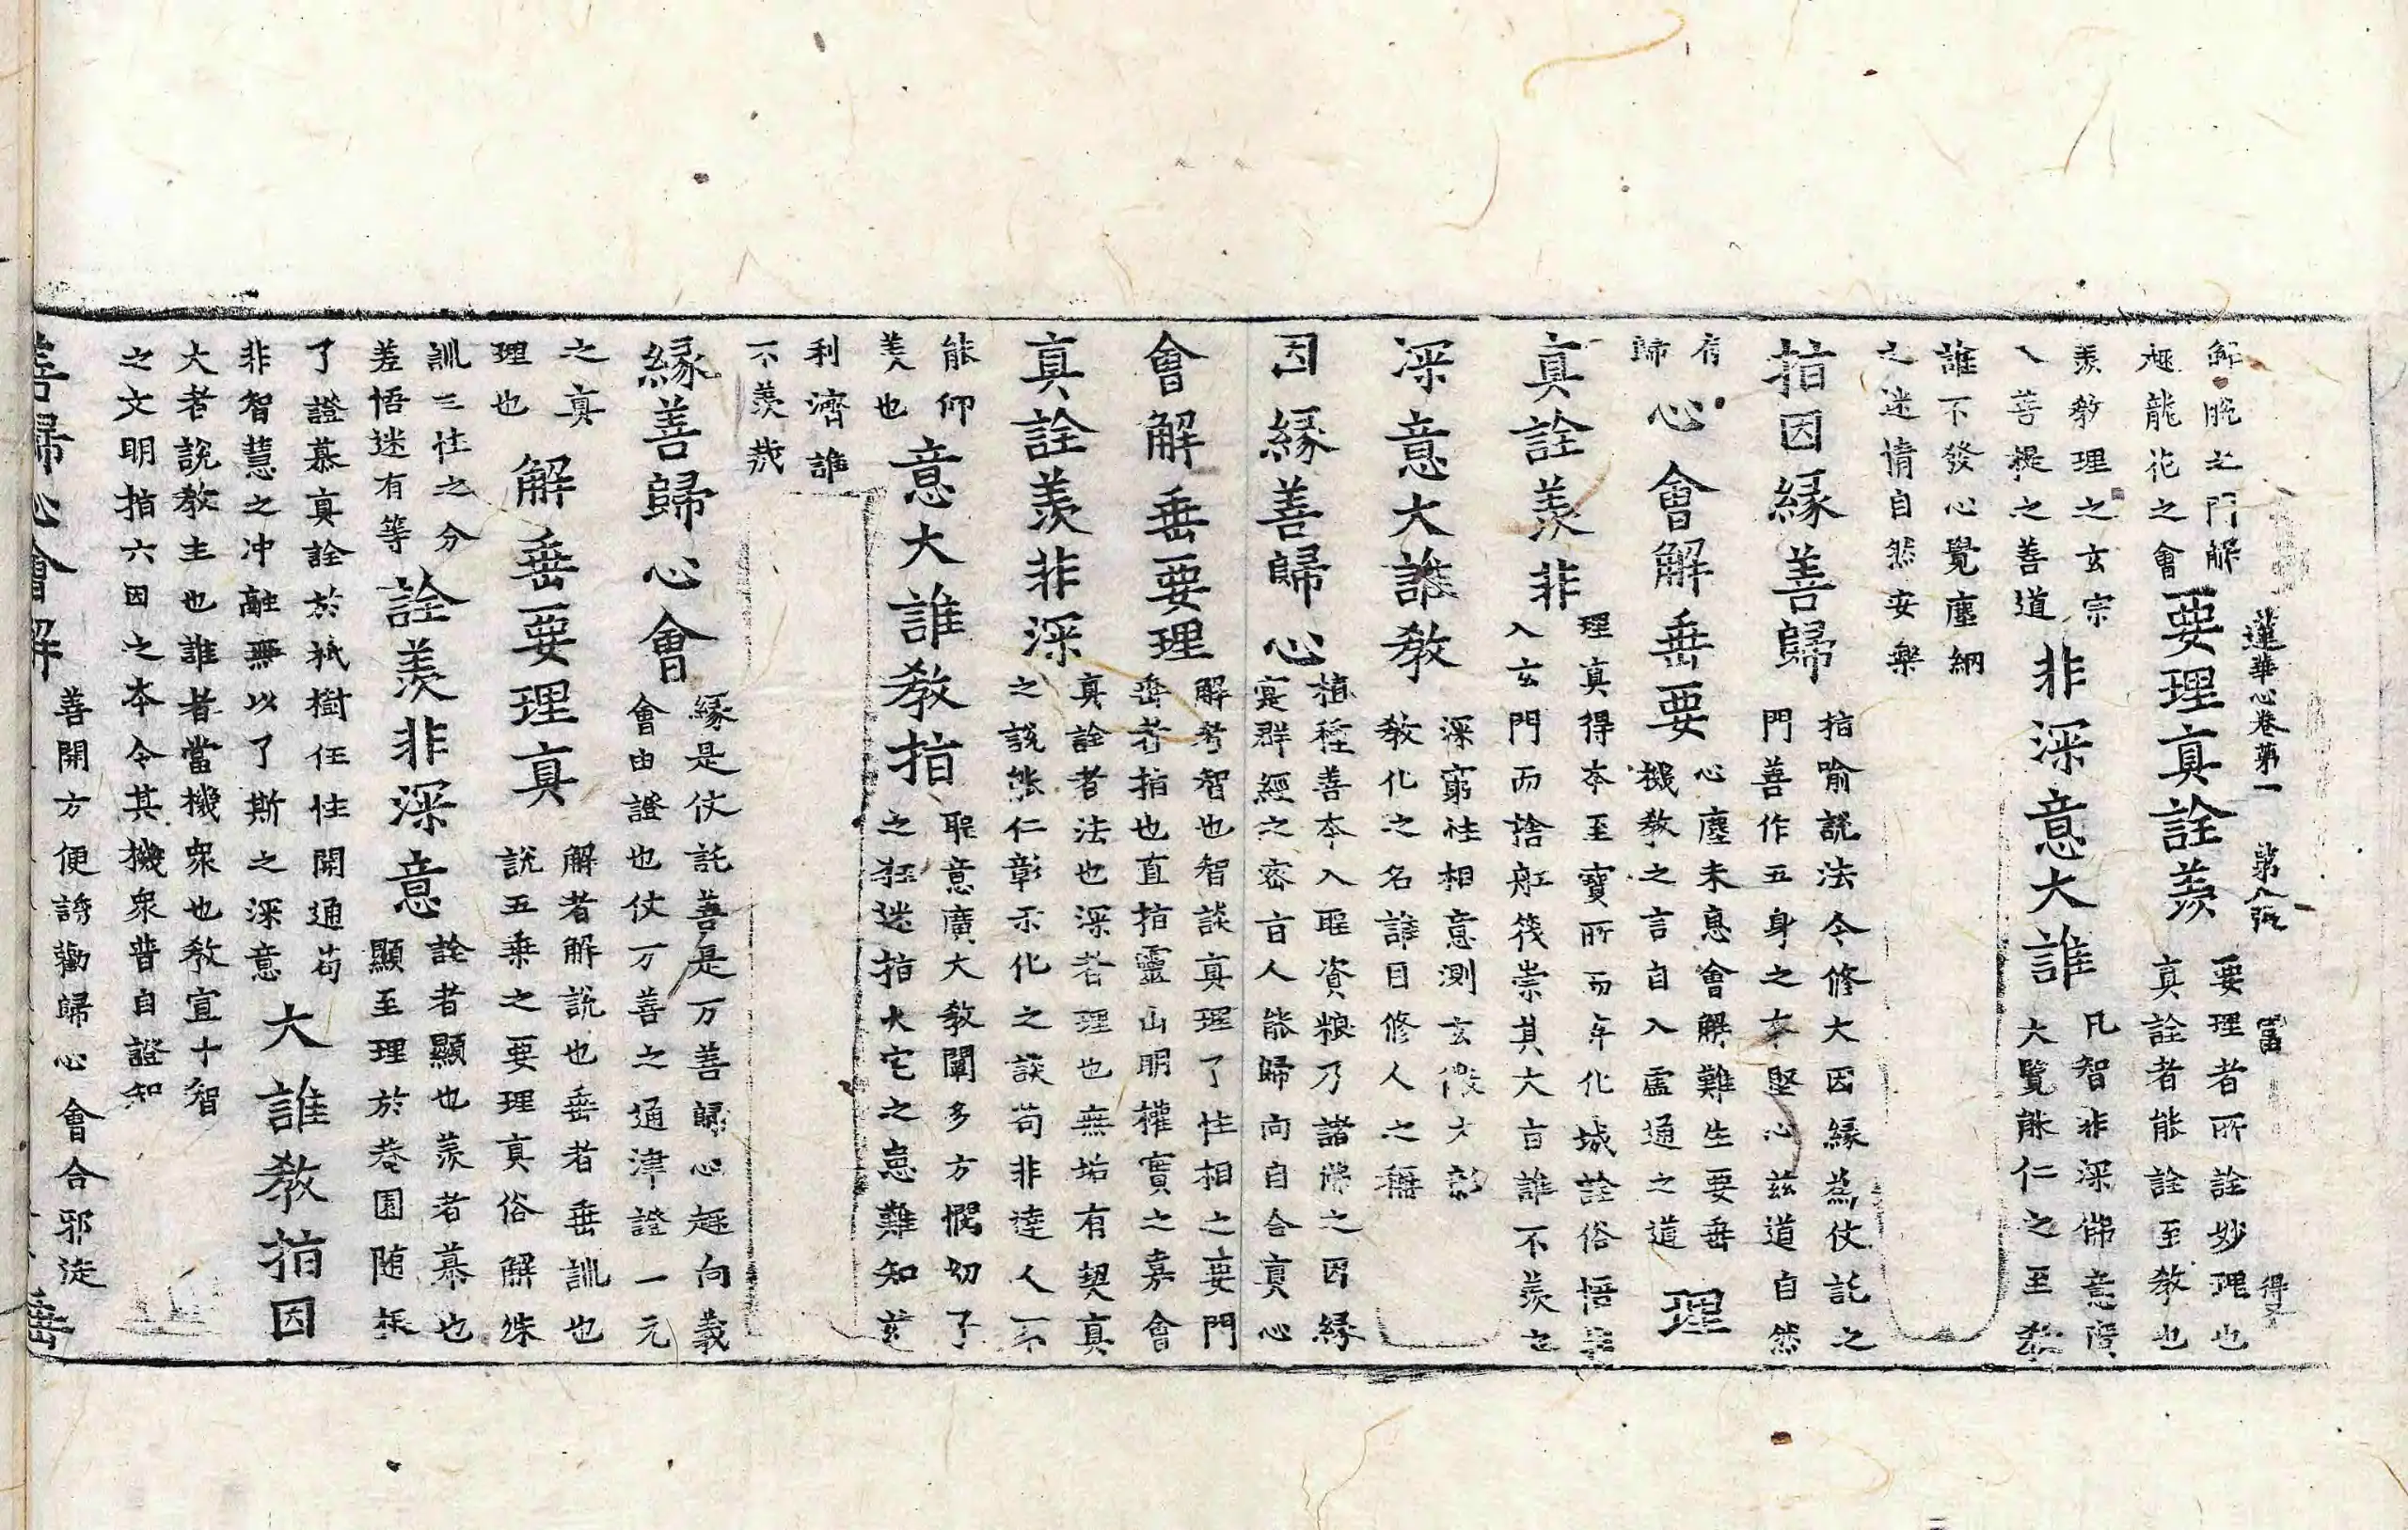 蓮華心卷第一 第八張 富 得子
解脫之門解
趣龍花之會
要理真詮羨
要理者所詮妙理也
真詮者能詮至教也
羨教理之玄宗
入菩提之善道
非深意大誰
凡智非深佛意
大覽能仁之至教
誰不發心覺塵網
之迷情自然安樂
指因緣善歸
指喻說法令修大因緣為仗託之
門善作五身之本堅心茲道自然
有
歸
心會解垂要
心塵未息會解難生要垂
機教之言自入靈通之道
理
真詮羨非
理真得本至寶所而年化城詮俗悟
入玄門而捨舡筏崇其大旨誰不羨
深意大誰教
深窮性相意測玄微大彰
教化之名誰目修人之稱
因緣善歸心
植種善本入聖資粮乃諸佛之因緣
寔群經之密旨人能歸向自合真心
會解垂要理
解者智也智談真理了性相之要門
垂者指也直指靈山明權實之嘉會
真詮羨非深
真詮者法也深者理也無垢有契真
之說能仁彰示化之談苟非達人不
能仰
羨也
意大誰教指
聖意廣大教闡多方憫幼子
之狂迷指火宅之忘難知茲
利濟誰
不羨哉
緣善歸心會
緣是仗託善是万善歸心趣向義
會由證也仗万善之通津證一元
之真
理也
解垂要理真
解者解說也垂者垂訓也
說五乘之要理真俗解殊
訓三性之分
差悟迷有等
詮羨非深意
詮者顯也羨者慕也
顯至理於菴園随樣
了證慕真詮於祇樹任性開通苟
非智慧之冲融無以了斯之深意
大誰教指因
大者說教主也誰者當機衆也教宣十智
之文明指六因之本令其機衆普自證知
善歸心會解
善開方便誘勸歸心會合邪徒
垂